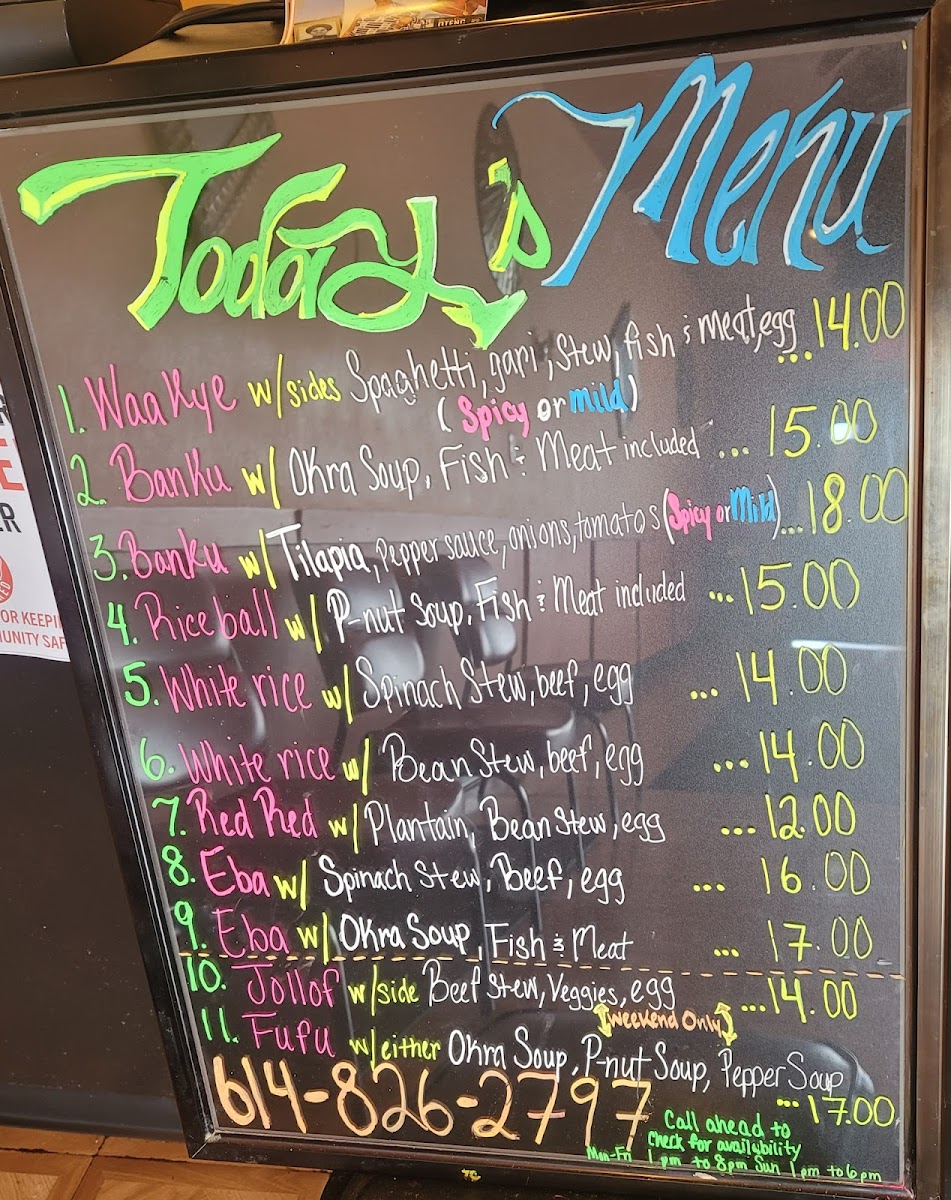 Today's Menu
1. Waakye w/sides Spaghetti, gari; Stew, fish & Meat, egg ... 14.00
(Spicy or Mild)
2. Banku w/ Okra Soup, Fish & Meat included ... 15.00
3. Banku w/ Tilapia, Pepper sauce, onions, tomatos (Spicy or Mild) ... 18.00
4. Rice ball w/ P-nut Soup, Fish & Meat included ... 15.00
5. White rice w/ Spinach Stew, beef, egg ... 14.00
6. White rice w/ Bean Stew, beef, egg ... 14.00
7. Red Red w/ Plantain, Bean Stew, egg ... 12.00
8. Eba w/ Spinach Stew, Beef, egg ... 16.00
9. Eba w/ Okra Soup, Fish & Meat ... 17.00
10. Jollof w/side Beef Stew, Veggies, egg ... 14.00
[Weekend Only]
11. Fufu w/either Okra Soup, P-nut Soup, Pepper Soup
... 17.00
614-826-2797
Call ahead to
Check for availybility
Mon-Fri 1pm to 8pm Sun 1pm to 6pm
OR KEEPI
UNITY SAF